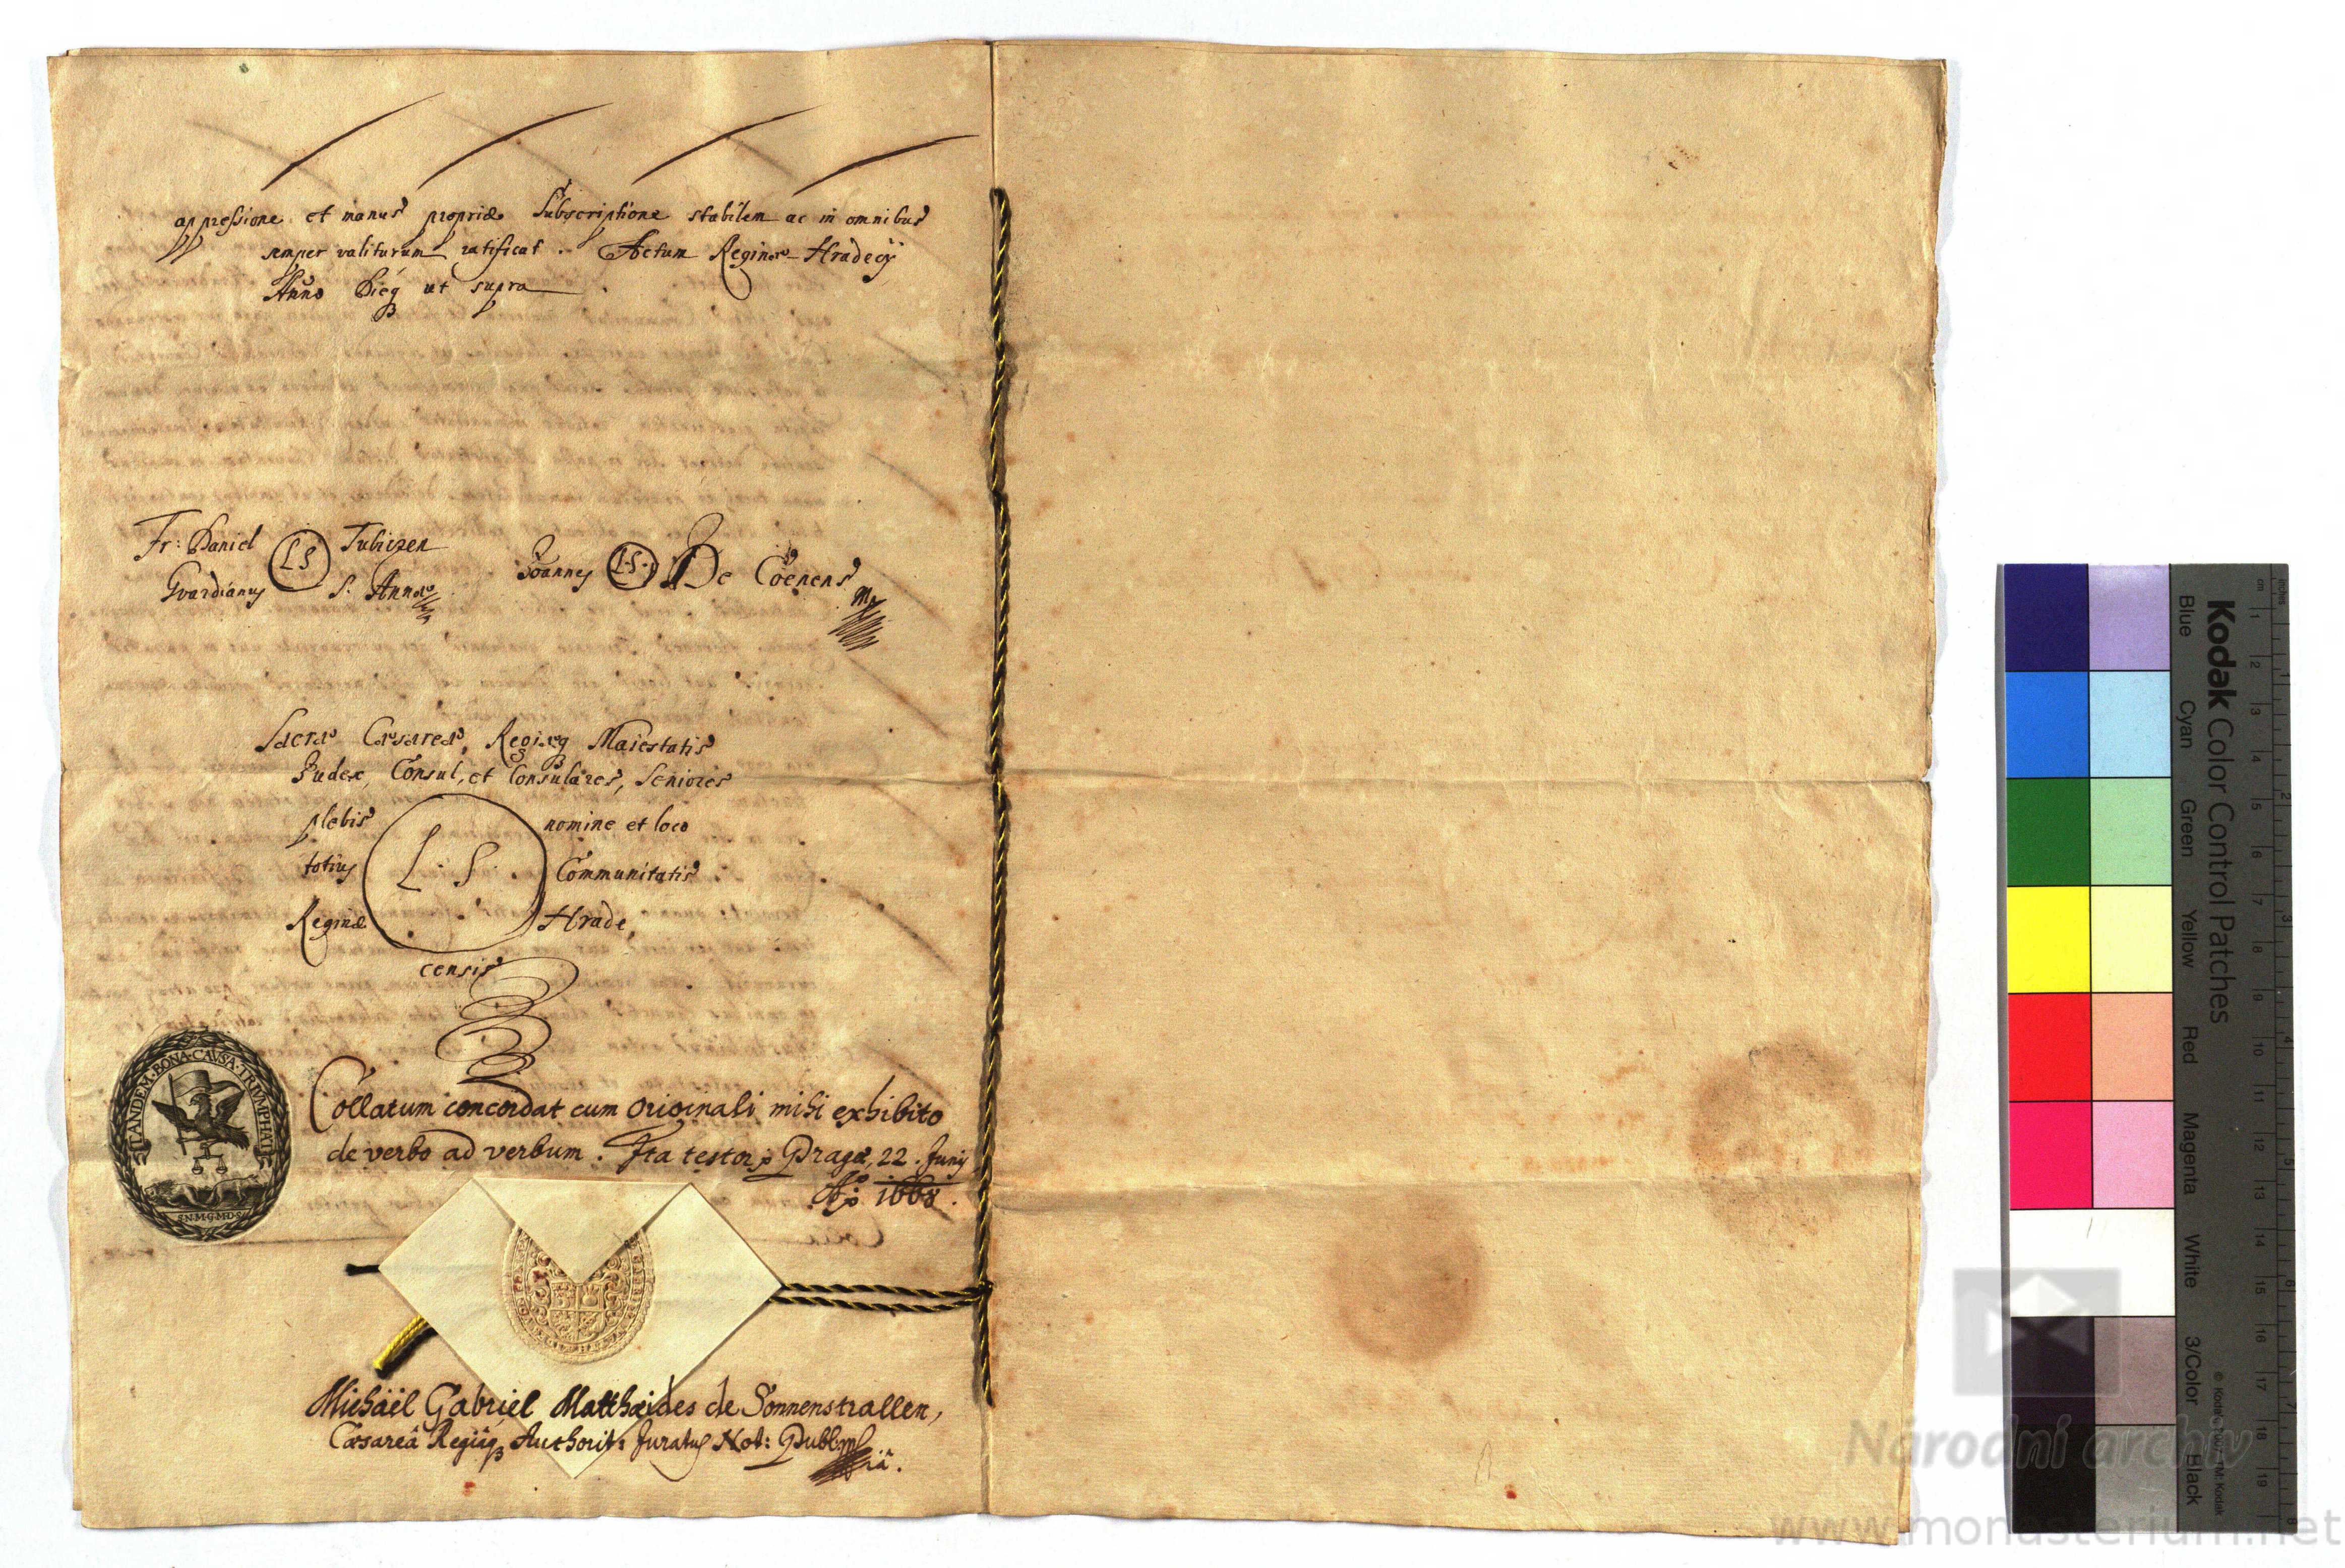 appressione et manus propriæ Subscriptione stabilem ac in omnibus
semper valiturum ratificat. Actum Reginæ Hradecij
Anno Dieq; ut supra
Fr: Daniel LS
Guardianus S. Annæ
Joannes L.S. De Coenens mp
Sacræ Cæsareæ, Regiæq; Maiestatis
Judex, Consul, et Consulares, Seniores
plebis nomine et loco
totius L. S. Communitatis
Reginæ Hrade,
censis
TANDEM·BONA·CAVSA·TRIVMPHAT
Collatum concordat cum originali mihi exhibito
de verbo ad verbum. Ita testor Pragæ, 22. Junij
Aō 1668.
Michaël Gabriel Matthæides de Sonnenstrallen,
Cæsareâ Regiâq; Authorit: Juratus Not: Publ: mp
riâ.
Kodak Color Control Patches
Blue Cyan Green Yellow Red Magenta White 3/Color Black
inches
cm
1 2 3 4 5 6 7 8 9 10 11 12 13 14 15 16 17 18 19
© Kodak, 2007 TM: Kodak
Národní archiv
www.monasterium.net